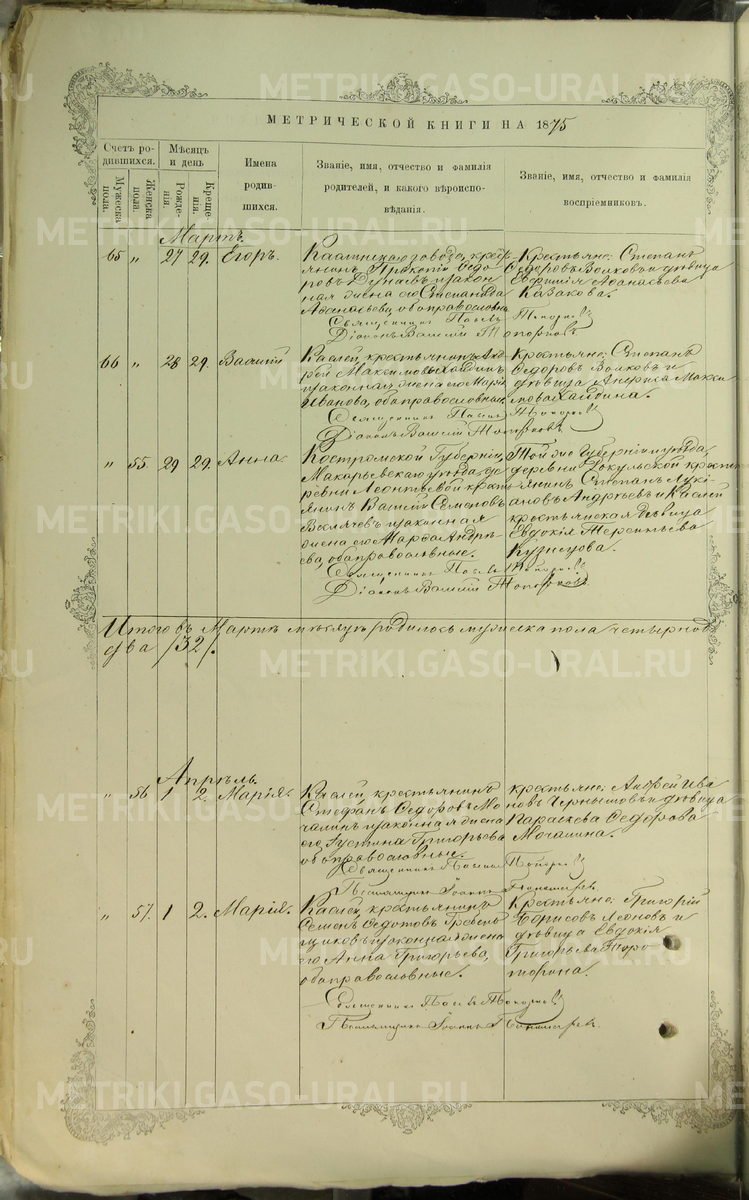 METRIKI.GASO-URAL.RU
МЕТРИЧЕСКОЙ КНИГИ НА 1875
Счетъ ро-
дившихся.
Мужеска
пола.
Женска
пола.
Мѣсяцъ
и день
Рожде-
нія.
Креще-
нія.
Имена
родив-
шихся.
Званіе, имя, отчество и фамилія
родителей, и какого вѣроиспо-
вѣданія.
Званіе, имя, отчество и фамилія
воспріемниковъ.
Мартъ.
65 „ 27 29. Егоръ.
Каслинскаго завода, кресть-
янинъ Прокопій Ѳедо-
ровъ Дунаевъ и закон-
ная жена его Степанида
Аѳанасьева, оба православны
Священникъ
Діаконъ Василій Топорковъ
Крестьяне: Степанъ
Ѳедоровъ Волковъ и дѣвица
Евфимія Аѳанасьева
Казакова.
66 „ 28 29. Василій
Каслей, крестьянинъ Анд-
рей Максимовъ Хайдинъ
и законная жена его Марія
Иванова, оба православные.
Священникъ
Діаконъ Василій Топорковъ
Крестьяне: Степанъ
Ѳедоровъ Волковъ и
дѣвица Анфиса Макси
мова Хайдина.
„ 55. 29 29. Анна.
Костромской Губерніи,
Макарьевскаго уѣзда, де-
ревни Леонтьевой кресть-
янинъ Василій Семеновъ
и законная
жена его Марѳа Андре-
ева, оба православные.
Священникъ
Діаконъ Василій Топорковъ
Той же Губерніи и уѣзда,
деревни крест
янинъ Степанъ Луки-
ановъ Андреевъ и Каслей
крестьянская дѣвица
Евдокія Терентьева
Кузнецова.
Итого въ Мартѣ мѣсяцѣ родилось мужеска пола четырнад
два /32/.
Апрѣль.
„ 56 1 2. Марія.
Каслей, крестьянинъ
Стефанъ Ѳедоровъ Мо-
чалинъ и законная жена
его Устина Григорьева
оба православные.
Священникъ
Псаломщикъ Іоаннъ
крестьяне: Андрей Ива
новъ Чернышовъ и дѣвица
Параскева Ѳедорова
Мочалина.
„ 57. 1 2. Марія.
Каслей, крестьянинъ
Семенъ Ѳедотовъ Гребень
щиковъ и законная жена
его Анна Григорьева,
оба православные.
Священникъ
Псаломщикъ Іоаннъ
Крестьяне: Григорій
Борисовъ Леоновъ и
дѣвица Евдокія
Григорьева